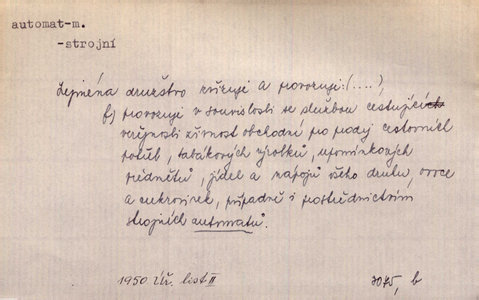 automat-m.
-strojní
Zejména družstvo zřizuje a provozuje:(....),
f) provozuje v souvislosti se službou cestující
veřejnosti živnost obchodní pro prodej cestovních
potřeb, tabákových výrobků, upomínkových
předmětů, jídel a nápojů všeho druhu, ovoce
a cukrovinek, případně i prostřednictvím
strojních automatů.
1950 Úř. list II
3075, b